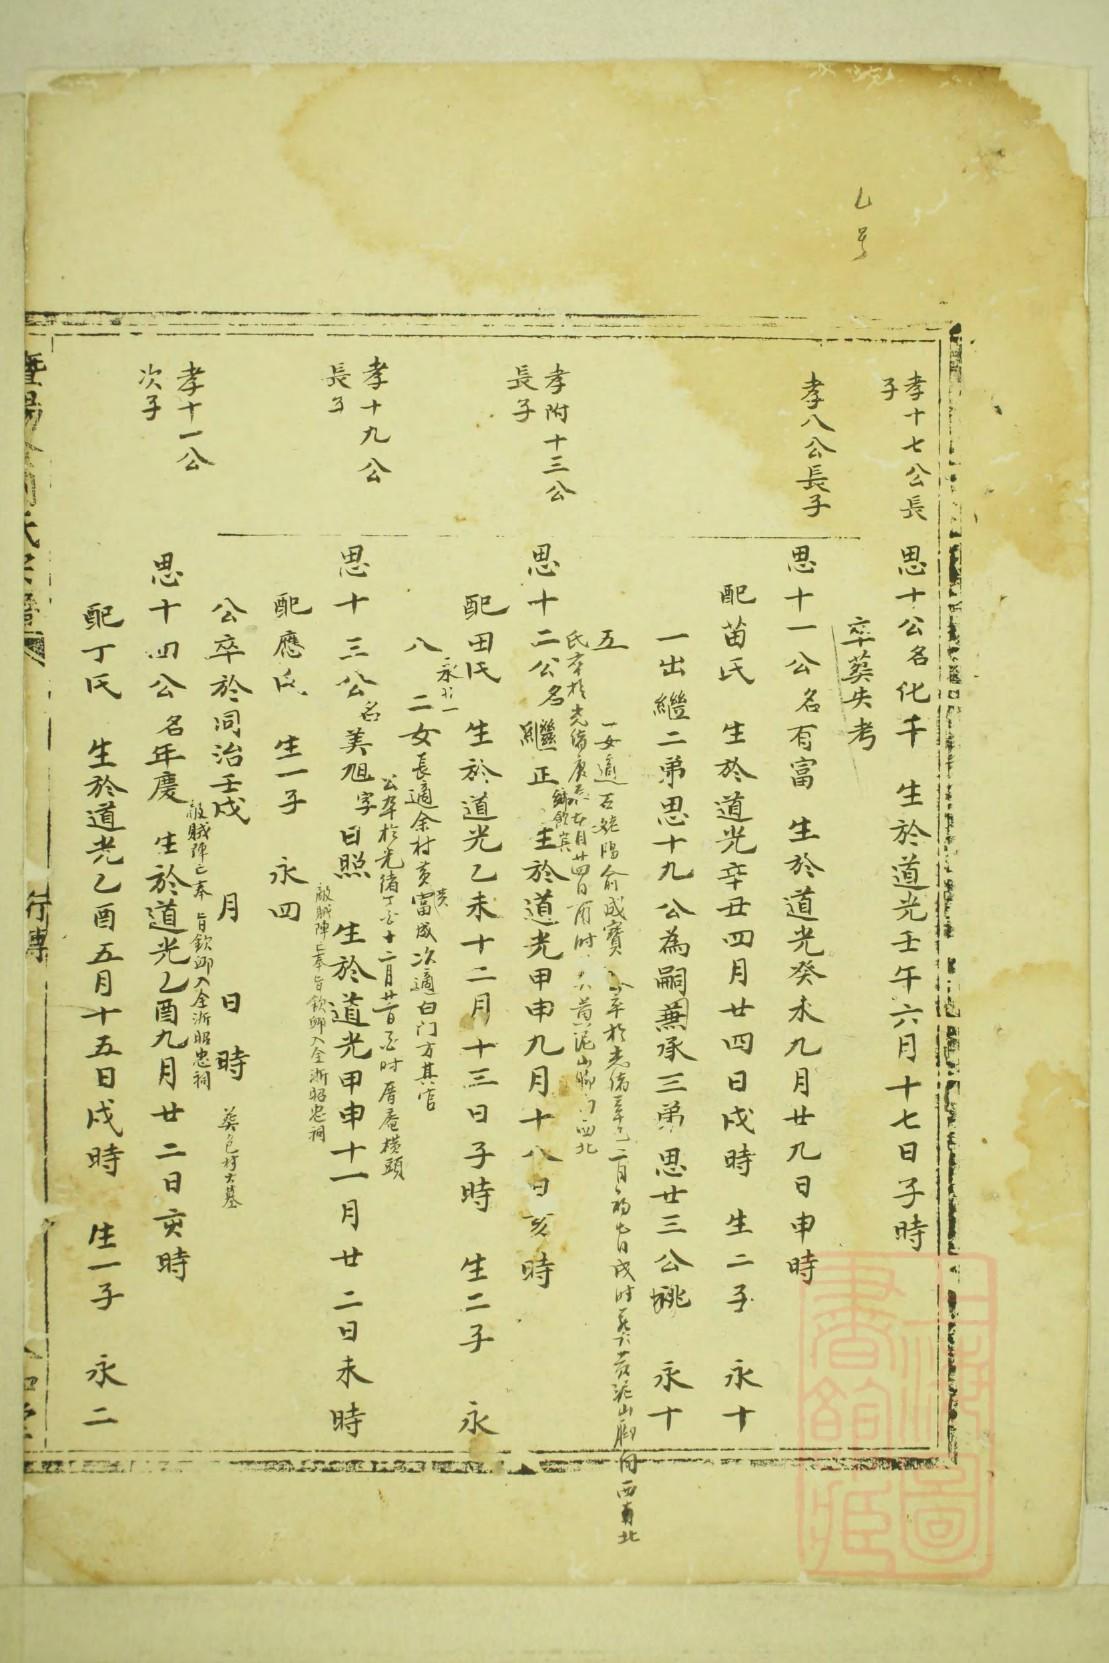 乙号
孝十七公長
子
思十公名化千　生於道光壬午六月十七日子時
卒葬失考
孝八公長子
思十一公名有富　生於道光癸未九月廿九日申時
配苗氏　生於道光辛丑四月廿四日戌時　生二子　永十
一出繼二弟思十九公為嗣兼承三弟思廿三公祧　永十
五　一女適
俞成寶
戌時
黃泥山腳向西
北
孝附十三公
長子
思十二公名繼正　生於道光甲申九月十八日亥時
鄉飲賓
氏卒於光緒
黃泥山腳向西北
配田氏　生於道光乙未十二月十三日子時　生二子　永
八　二女長適余村黃富成次適白门方其官
公卒於光緒丁
十二月
時厝庵橫頭
孝十九公
長子
思十三公名美旭字日照　生於道光甲申十一月廿二日未時
敵賊陣亡奉旨欽卹入全浙昭忠祠
配應氏　生一子　永四
公卒於同治壬戌　月　日　時
葬色村大墓
孝十一公
次子
思十四公名年慶　生於道光乙酉九月廿二日亥時
敵賊陣亡奉旨欽卹入全浙昭忠祠
配丁氏　生於道光乙酉五月十五日戌時　生一子　永二
行傳